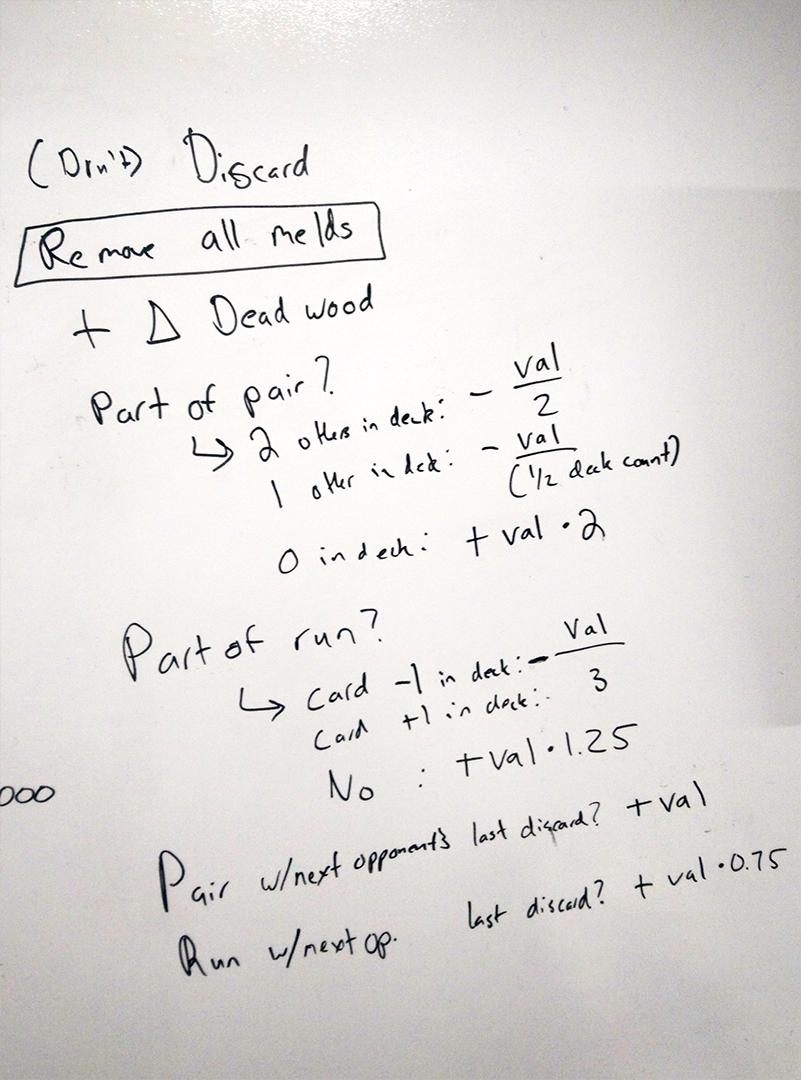 (Don't) Discard
Remove all melds
+ Δ Deadwood
Part of pair?
↳ 2 others in deck: - val/2
1 other in deck: - val/(1/2 deck count)
0 in deck: + val · 2
Part of run?
↳ card -1 in deck: - val/3
card +1 in deck:
No : + val · 1.25
000
Pair w/next opponent's last discard? + val
Run w/next op. last discard? + val · 0.75